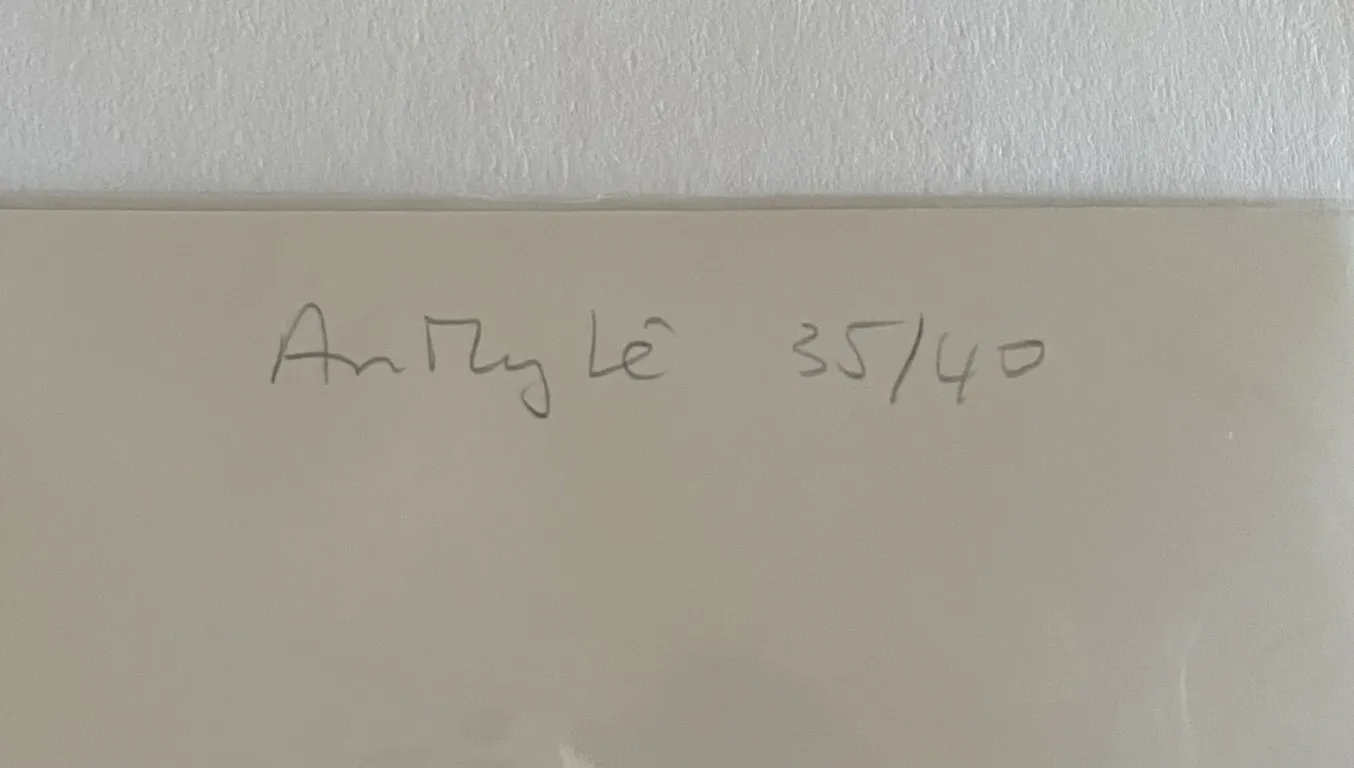 An My Lê 35/40